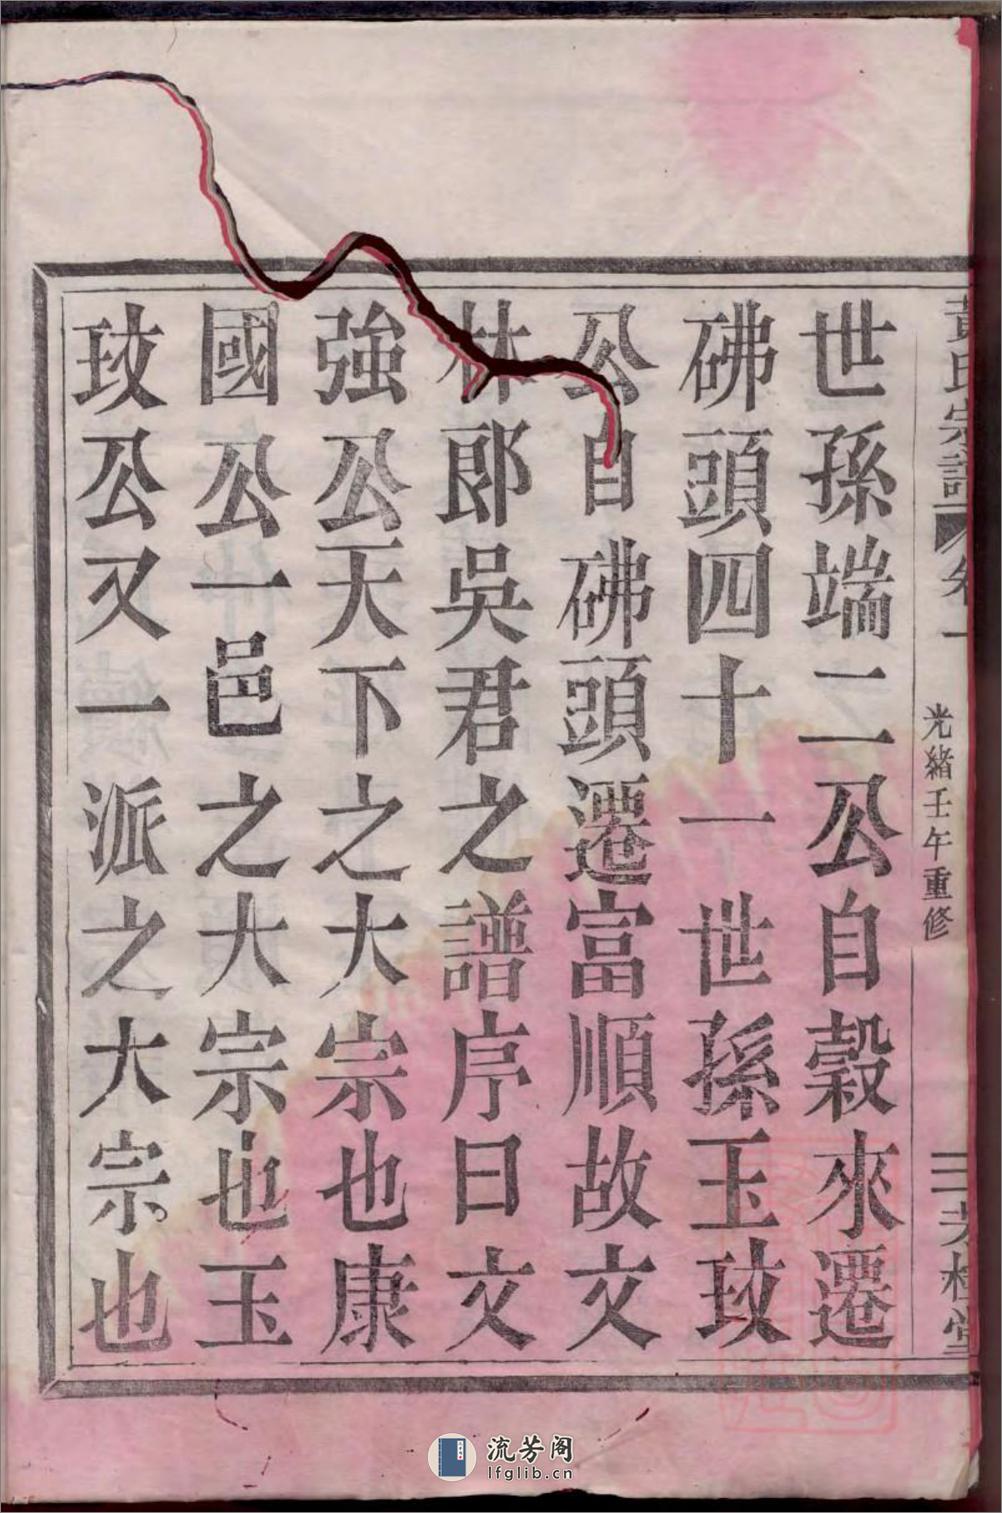 黃氏宗譜
卷一
光緒壬午重修
世孫端二公自穀來遷
砩頭四十一世孫玉玫
公自砩頭遷富順故文
林郎吳君之譜序曰文
強公天下之大宗也康
國公一邑之大宗也玉
玫公又一派之大宗也
流芳阁
lfglib.cn